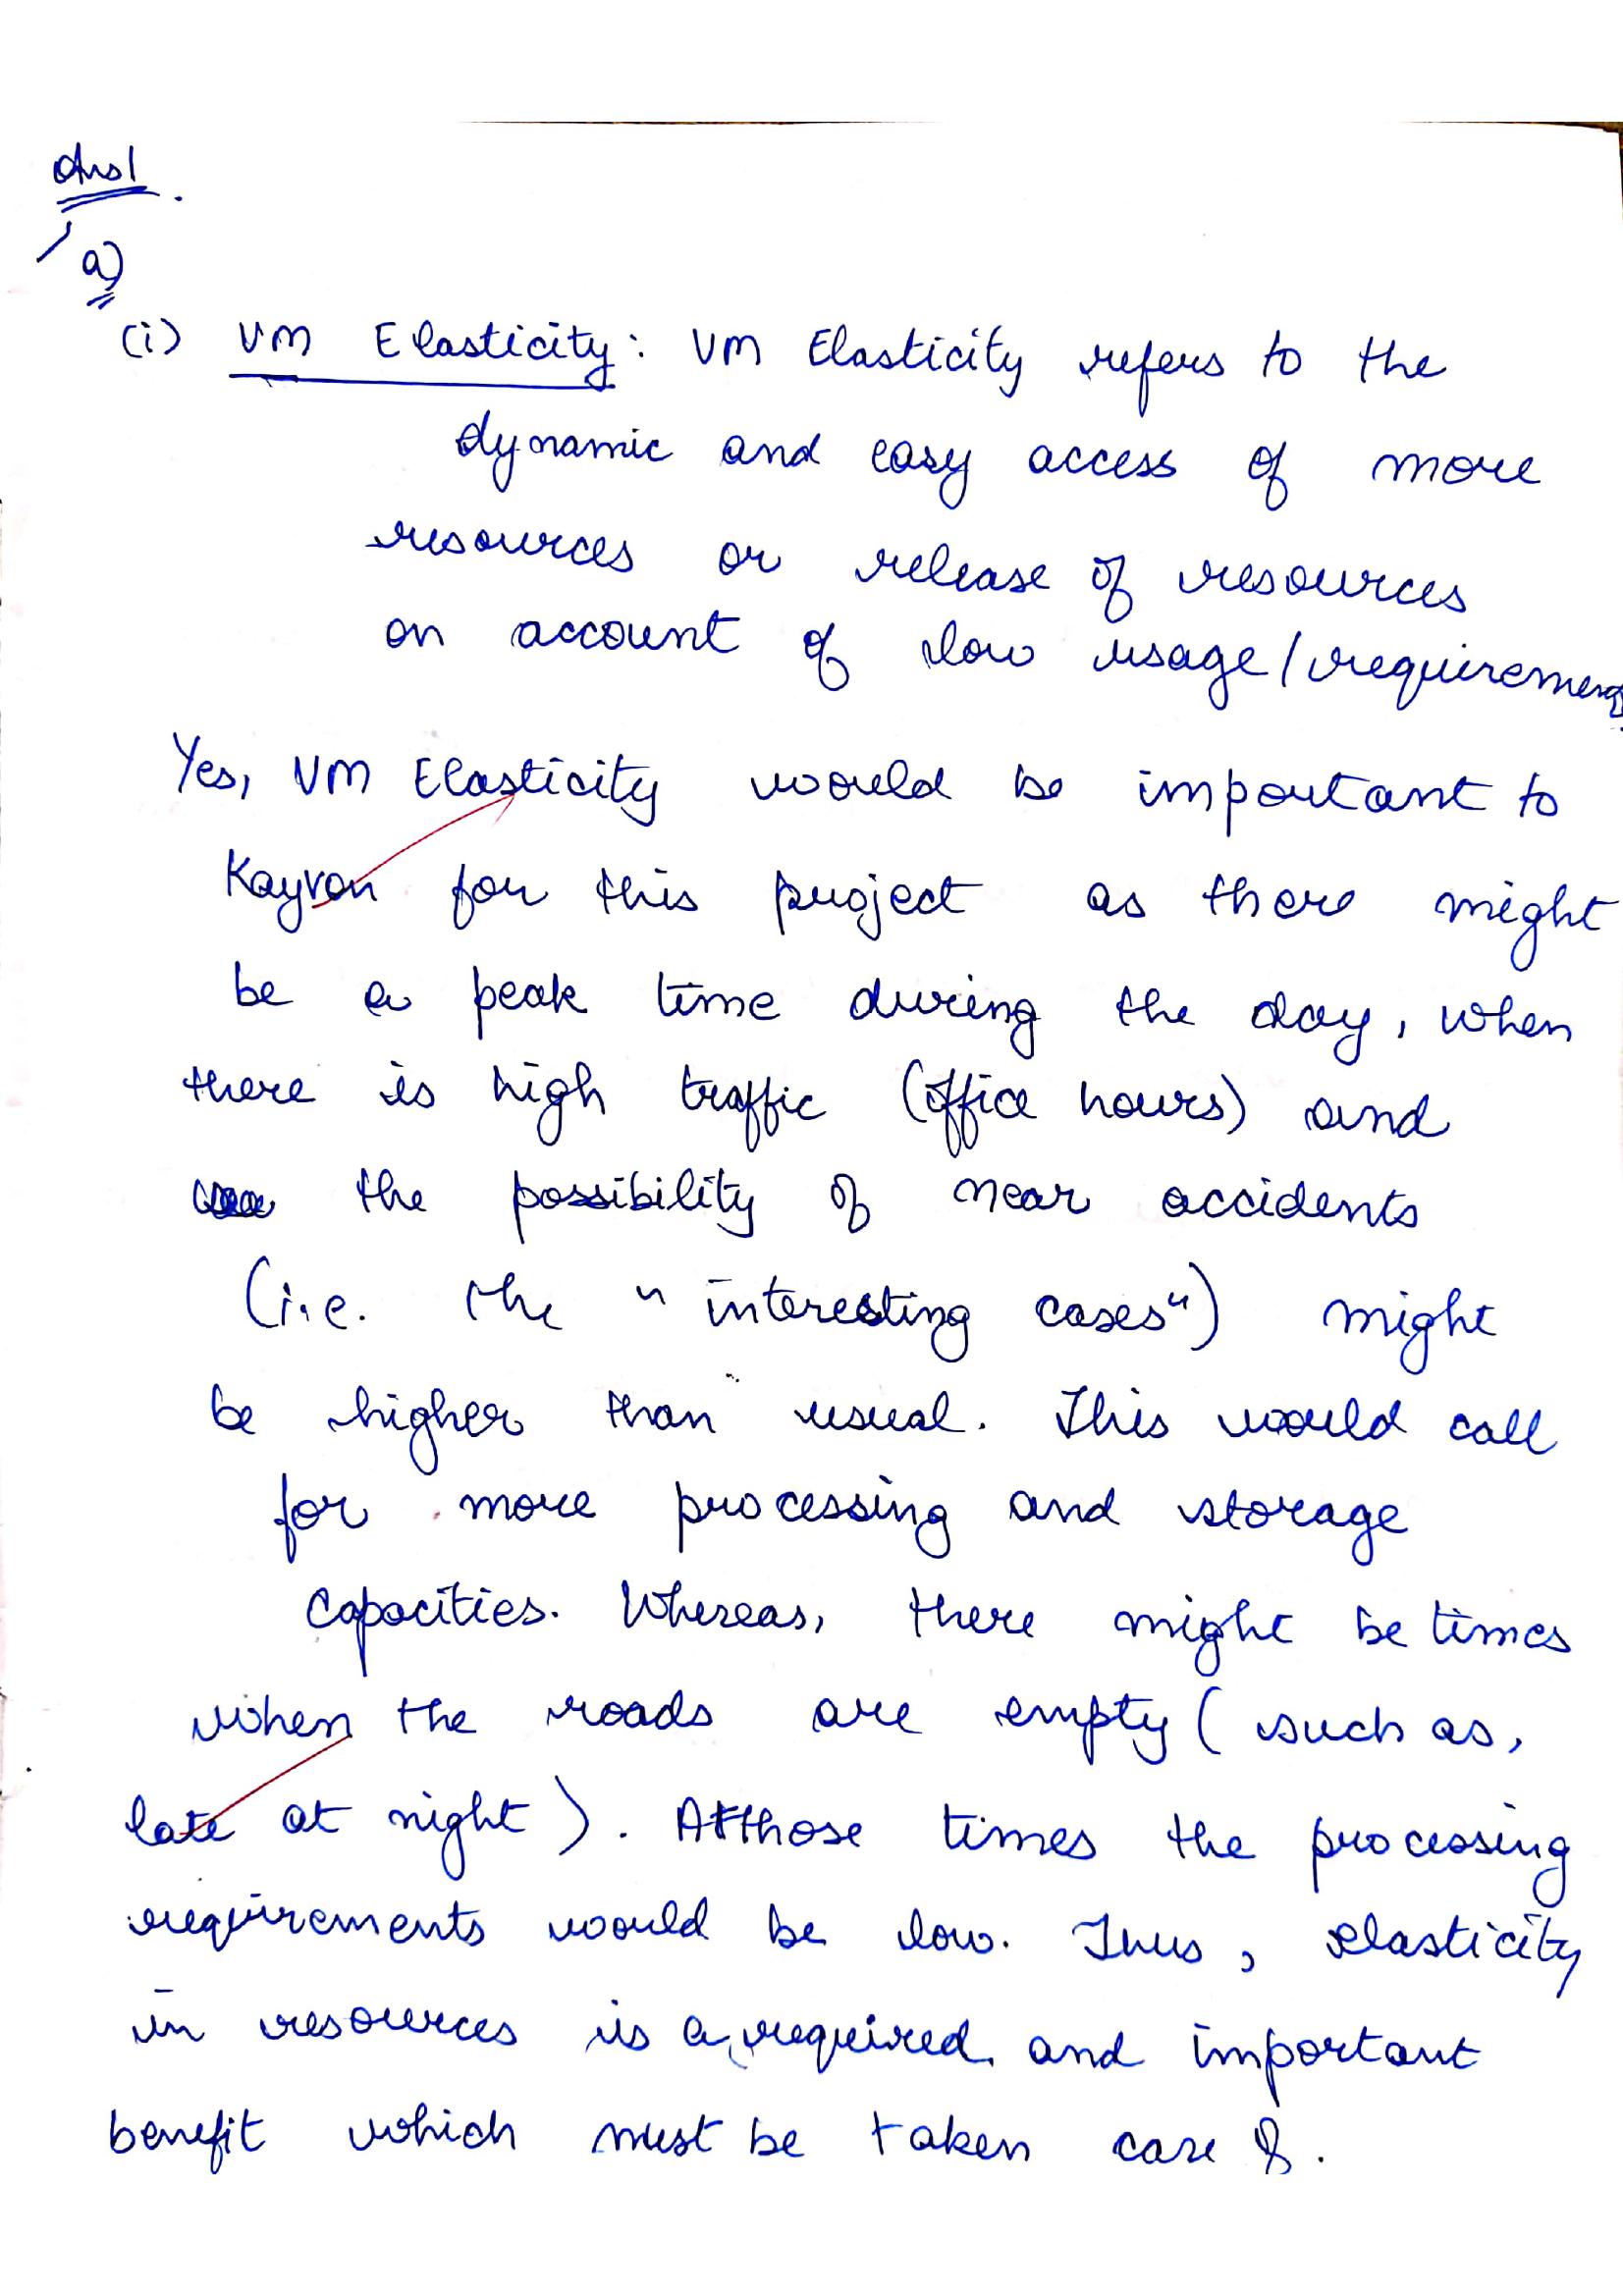 Ans1.
a)
(i) VM Elasticity: VM Elasticity refers to the
dynamic and easy access of more
resources or release of resources
on account of low usage/requirement
Yes, VM Elasticity would be important to
Kayvon for this project as there might
be a peak time during the day, when
there is high traffic (office hours) and
the possibility of near accidents
(i.e. the "interesting cases") might
be higher than usual. This would call
for more processing and storage
capacities. Whereas, there might be times
when the roads are empty (such as,
late at night). At those times the processing
requirements would be low. Thus, elasticity
in resources is a required and important
benefit which must be taken care of.